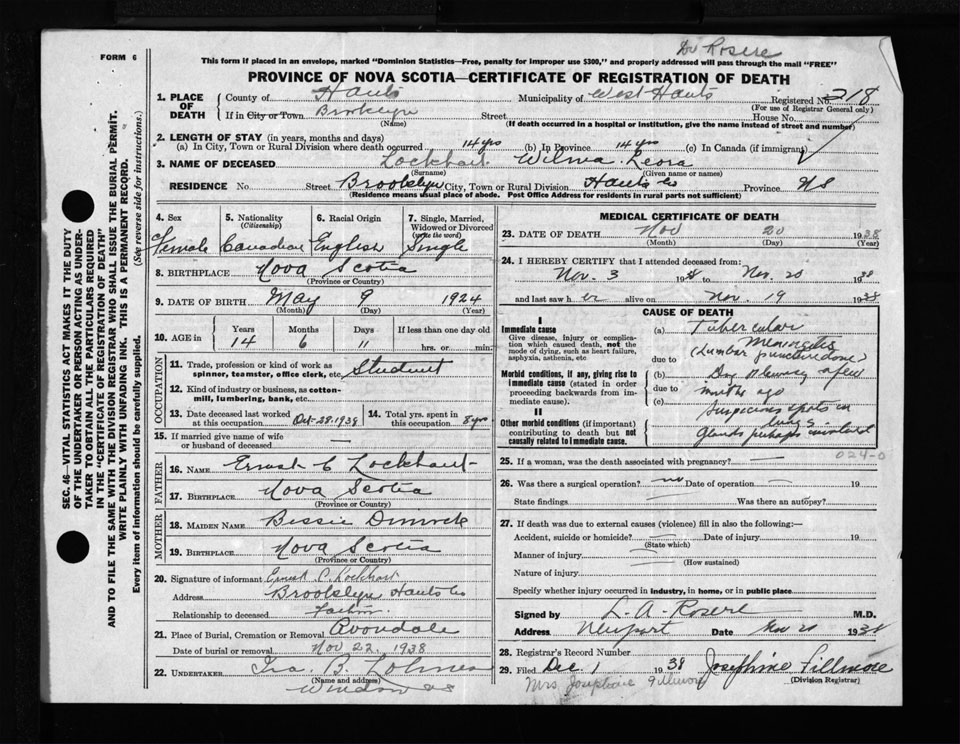 FORM 6
Dr Rosere
This form if placed in an envelope, marked "Dominion Statistics—Free, penalty for improper use $300," and properly addressed will pass through the mail "FREE"
PROVINCE OF NOVA SCOTIA—CERTIFICATE OF REGISTRATION OF DEATH
1. PLACE OF DEATH
County of Hants Municipality of West Hants Registered No. 318
(For use of Registrar General only)
If in City or Town Brooklyn Street House No.
(Name) (If death occurred in a hospital or institution, give the name instead of street and number)
2. LENGTH OF STAY (in years, months and days)
(a) In City, Town or Rural Division where death occurred 14 yrs (b) In Province 14 yrs (c) In Canada (if immigrant)
3. NAME OF DECEASED Lockhart Wilma Leora
(Surname) (Given name or names)
RESIDENCE No. Street Brooklyn City, Town or Rural Division Hants Co Province NS
(Residence means usual place of abode. Post Office Address for residents in rural parts not sufficient)
4. Sex Female
5. Nationality (Citizenship) Canadian
6. Racial Origin English
7. Single, Married, Widowed or Divorced (write the word) Single
8. BIRTHPLACE Nova Scotia
(Province or Country)
9. DATE OF BIRTH May 9 1924
(Month) (Day) (Year)
10. AGE in Years 14 Months 6 Days 11 If less than one day old hrs. or min.
OCCUPATION
11. Trade, profession or kind of work as spinner, teamster, office clerk, etc. Student
12. Kind of industry or business, as cotton-mill, lumbering, bank, etc.
13. Date deceased last worked at this occupation Oct-28-1938
14. Total yrs. spent in this occupation 8 yrs
15. If married give name of wife or husband of deceased —
FATHER
16. NAME Ernest C Lockhart
17. BIRTHPLACE Nova Scotia
(Province or Country)
MOTHER
18. MAIDEN NAME Bessie Dimock
19. BIRTHPLACE Nova Scotia
(Province or Country)
20. Signature of informant Ernest C. Lockhart
Address Brooklyn Hants Co
Relationship to deceased Father
21. Place of Burial, Cremation or Removal Avondale
Date of burial or removal Nov 22, 1938
22. UNDERTAKER Ira B.
(Name and address)
Windsor NS
MEDICAL CERTIFICATE OF DEATH
23. DATE OF DEATH Nov 20 1938
(Month) (Day) (Year)
24. I HEREBY CERTIFY that I attended deceased from:
Nov. 3 1938 to Nov. 20 1938
and last saw h er alive on Nov. 19 1938
CAUSE OF DEATH
I
Immediate cause
Give disease, injury or complication which caused death, not the mode of dying, such as heart failure, asphyxia, asthenia, etc
Morbid conditions, if any, giving rise to immediate cause (stated in order proceeding backwards from immediate cause).
II
Other morbid conditions (if important) contributing to death but not causally related to immediate cause.
(a) Tubercular
Meningitis
due to (Lumbar puncture done)
(b) Dry Pleurisy a few
due to months ago
(c) Suspicious spots in
lungs.
Glands perhaps involved
024-0
25. If a woman, was the death associated with pregnancy? —
26. Was there a surgical operation? no Date of operation — 19
State findings Was there an autopsy?
27. If death was due to external causes (violence) fill in also the following:—
Accident, suicide or homicide? Date of injury 19
(State which)
Manner of injury
(How sustained)
Nature of injury
Specify whether injury occurred in industry, in home, or in public place
Signed by L. A. Rosere M.D.
Address Newport Date Nov 20 1938
28. Registrar's Record Number
29. Filed Dec. 1 1938 Josephine Fillmore
(Division Registrar)
Mrs Josephine Fillmore
SEC. 46—VITAL STATISTICS ACT MAKES IT THE DUTY
OF THE UNDERTAKER OR PERSON ACTING AS UNDER-
TAKER TO OBTAIN ALL THE PARTICULARS REQUIRED
IN THE "CERTIFICATE OF REGISTRATION OF DEATH"
AND TO FILE THE SAME WITH THE DIVISION REGISTRAR WHO SHALL ISSUE THE BURIAL PERMIT.
WRITE PLAINLY WITH UNFADING INK. THIS IS A PERMANENT RECORD.
Every item of information should be carefully supplied. (See reverse side for instructions.)